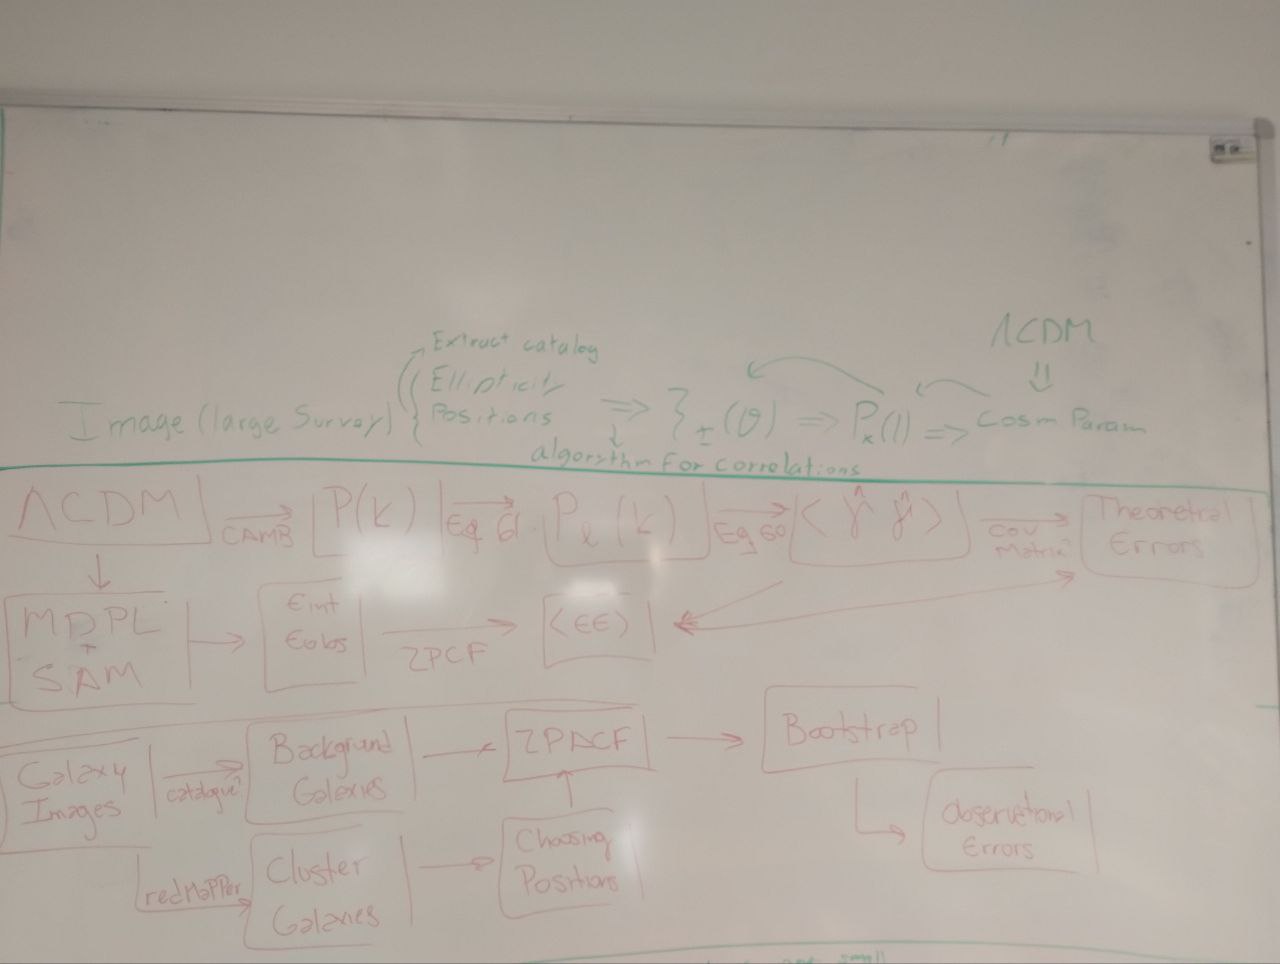 ΛCDM
⇓
Extract catalog
Ellipticity
Image (large Survey) { Positions ⇒ ξ±(θ) ⇒ Pκ(l) ⇒ Cosm Param
algorithm For correlations
ΛCDM → CAMB P(k) → Eq 61 Pℓ(k) → Eq 60 <γ̂ γ̂> → Cov Matrix Theoretical Errors
MDPL + SAM → Eint Eobs → 2PCF <EE>
Galaxy Images → catalogue Background Galaxies → 2PACF → Bootstrap
Observational Errors
redMaPPer Cluster Galaxies → Choosing Positions
small